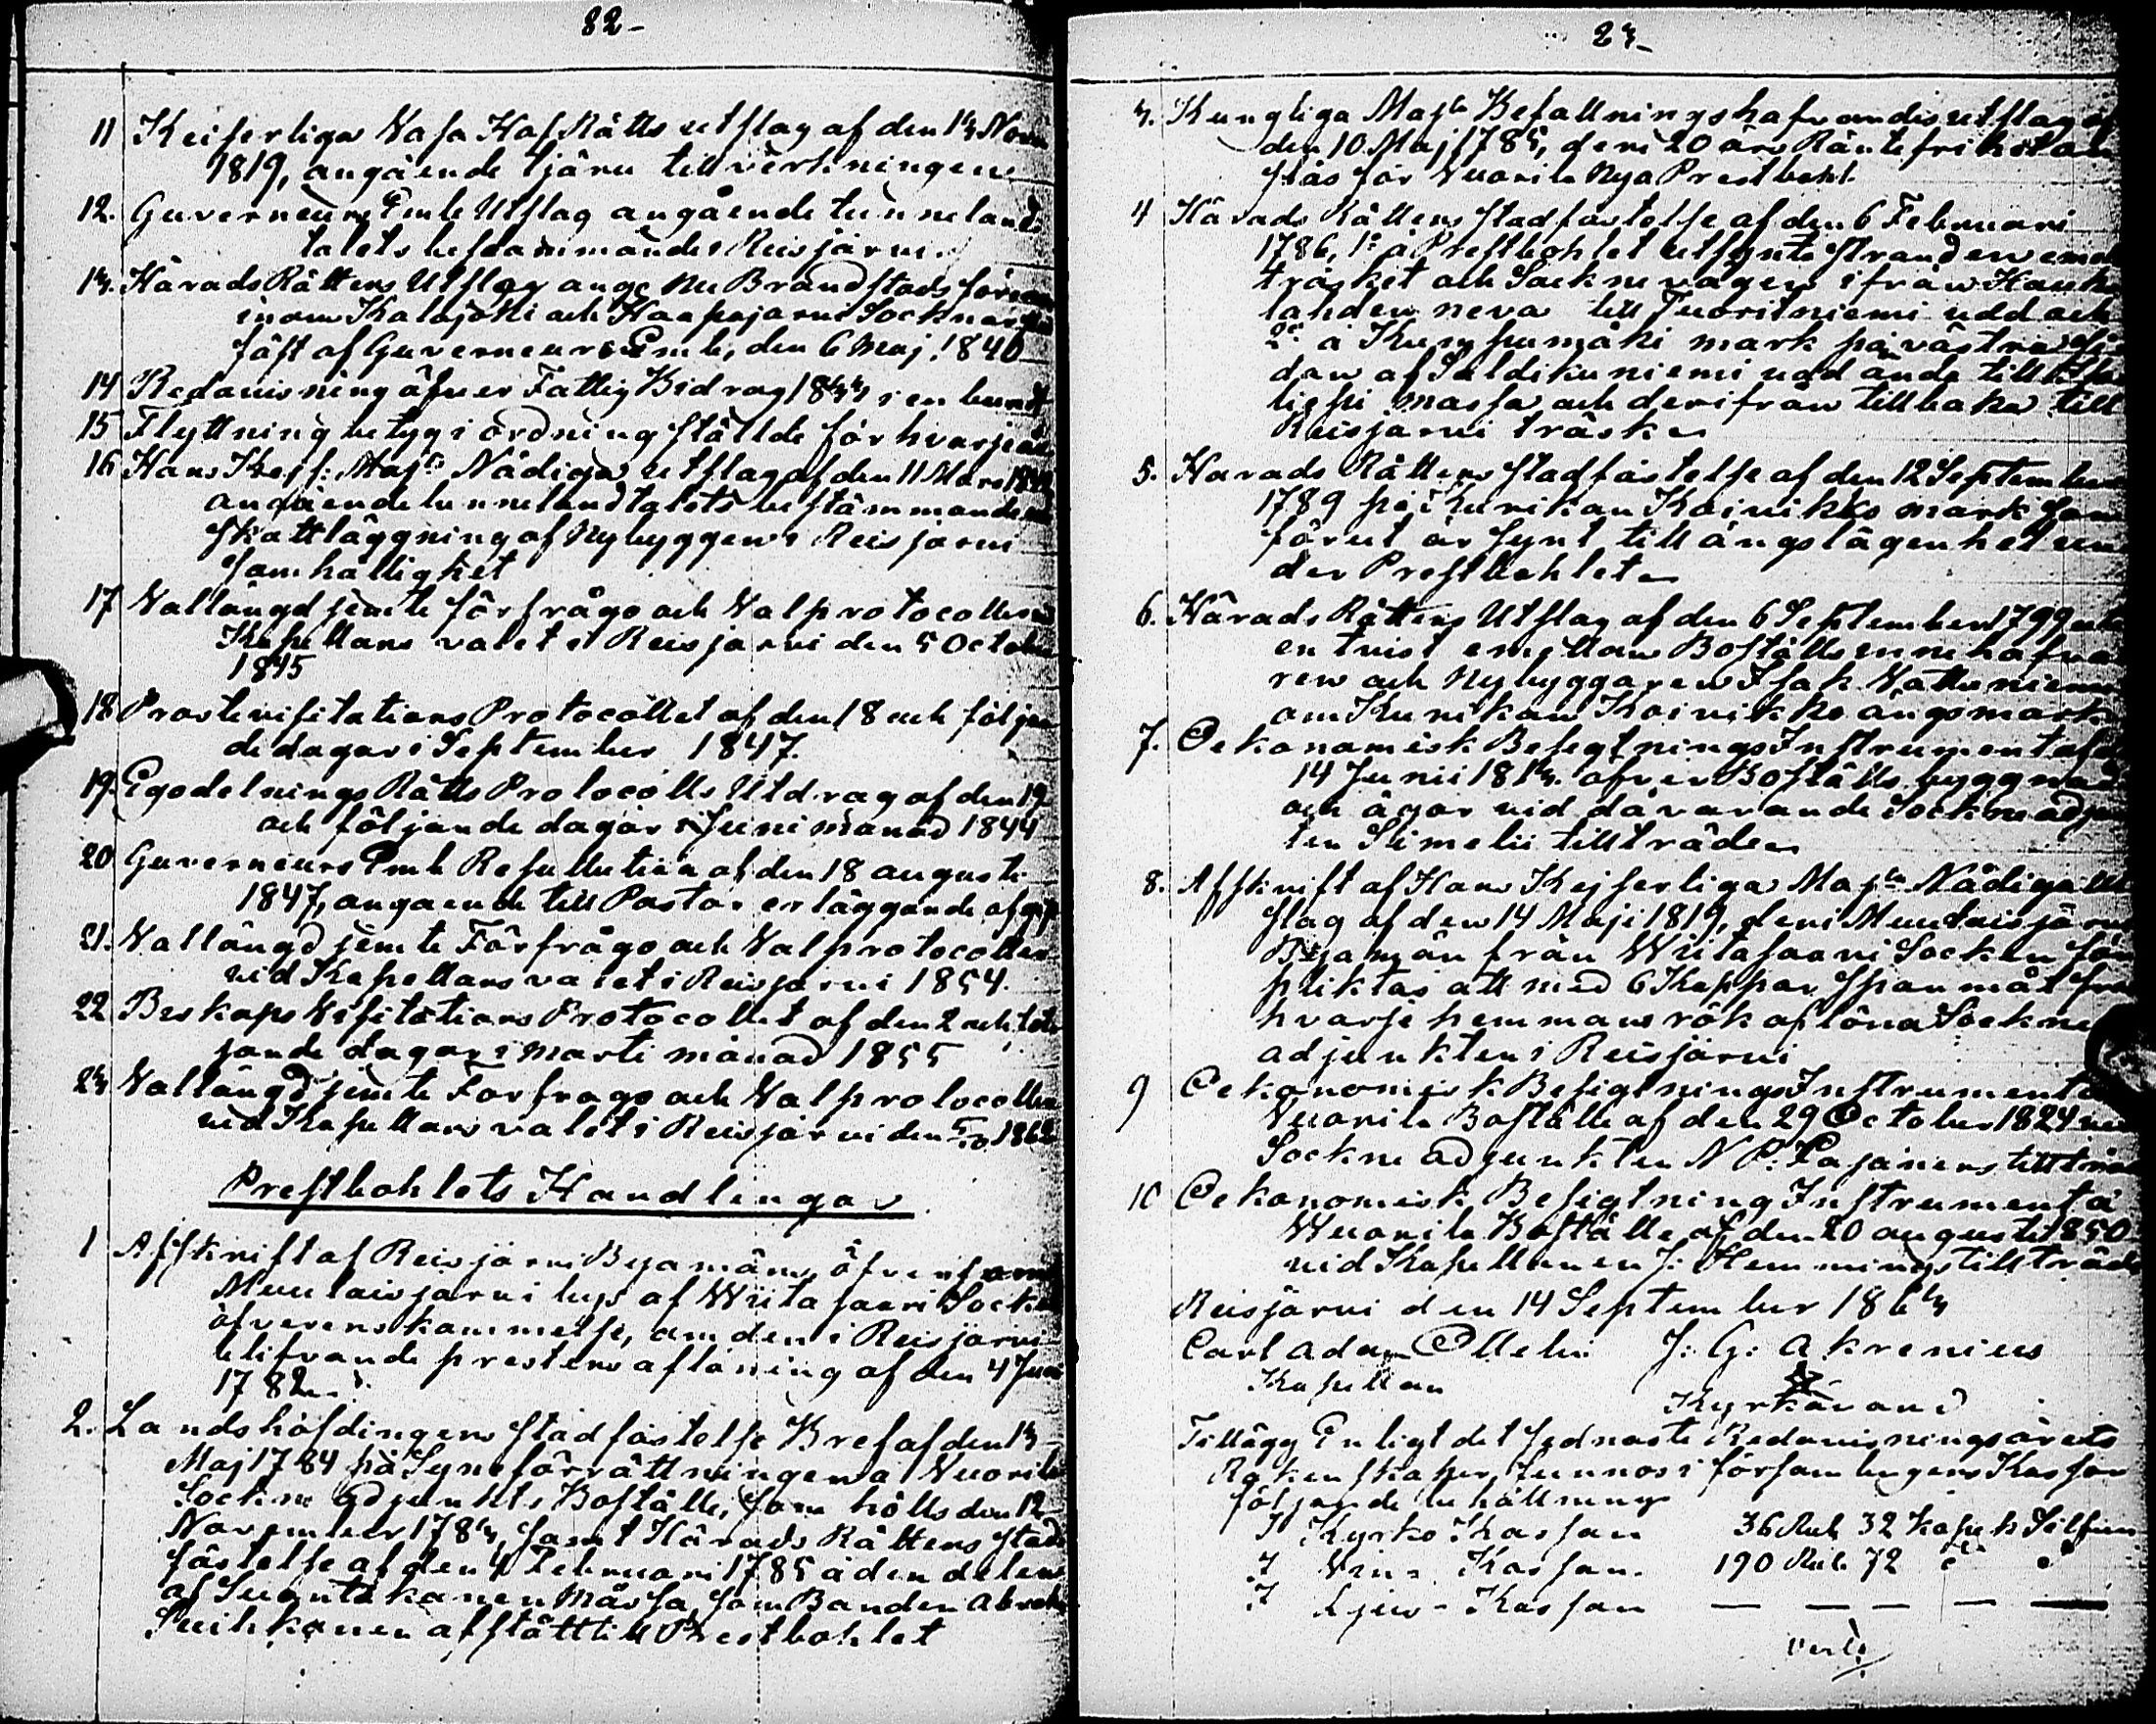 82-
11 Keiserliga Vasa Hof Rätts utslag af den 13 Nov
1819, angående tjäru tillverkningen
12. Guverneurs Emb. Utslag angående tunneland
talets bestämmande i Reisjärvi.
13. Härads Rättens Utslag ang. ne Brandstods fören
inom Kalajoki och Haapajärvi Socknar
fäst af Guverneurs Emb., den 6 Maj. 1840
14 Redovisning öfver Fattig Bidrag 1843 i en bunt
15 Flyttning betyg i ordning stållde för hvarje år
16 Hans Kejs: Majts Nådiga utslag af den 11 Mars
angående tunnelandtalets bestämmande
skattläggning af Nybyggen i Reisjärvi
samhällighet
17 Vallängd jemte förfrågo och Valprotocoller
Kapellans valet i Reisjärvi den 5 October
1845
18 Prostevisitations Protocollet af den 18 och följan
de dagar i September 1847.
19. Egodelnings Rätts Protocolls Utdrag af den 19
och följande dagar i Juni månad 1844
20 Guverneurs Emb. Resolution af den 18 augusti
1847, angående till Pastor erläggande afgif
21. Vallängd jemte Förfrågo och Valprotocoller
vid Kapellans valet i Reisjärvi 1854.
22 Biskops Visitations Protocollet af den 2 och följ
jande dagar i Marti månad 1855
23 Vallängd jemte Förfrågo och Valprotocoller
vid Kapellans valet i Reisjärvi den 5/10 1862
Prestbohlets Handlingar
1 Afskrift af Reisjärvi Byamäns, äfvensom
Muurlaisjärvi bys af Wiitasaari Socken
öfverenskommelse, om den i Reisjärvi
blifvande prestens aflöning af den 4 Juni
1782.
2. Landshöfdingens stadfästelse Bref af den 13
Maj 1784 på Syneförrättningen å Vuorila
Sockne adjunkts Boställe, som hölls den 12
November 1783, samt Härads Rättens stad
fästelse af den 4 Februari 1785 å den delen
af Suontakanen Mässa, som Bonden Abrah
Puihkonen afstått till Prestbohlet
23-
3. Kungliga Majts Befallningshafvandes utslag af
den 10 Maj 1785, deri 20 års Räntefrihet
stås för Vuorila Nya Prestbohl.
4 Härads Rättens stadfästelse af den 6 Februari
1786, 1o å Prestbohlet utsynte stranden emel
träsket och Sockne vägen ifrån Hauk
lahden neva till Juoritniemi udd och
2o å Kumpumäki mark på västra
dan af Saldikuniemi udd ända till
liepi massa och derifrån tillbaka till
Reisjärvi träsk
5. Härads Rättens stadfästelse af den 12 September
1789 på Kurikan Koivikko mark som
förut är synt till ängslägenhet un
der Prestbohlet
6. Härads Rättens Utslag af den 6 September 1799
en tvist emellan Boställs innehafva
ren och Nybyggaren Isak Vattuniemi
om Kurikan Koivikko ängsmark
7. Oekonomisk Besigtnings Instrument af
14 Junii 1813. öfver Boställs byggnad
och ägor vid dåvarande Sockneadjun
ten Simelii tillträde
8. Afskrift af Hans Kejserliga Majts Nådiga Ut
slag af den 14 Maji 1819, deri Muurlaisjärvi
Byamän från Wiitasaari Socken för
pliktas att med 6 Kappar Spanmål från
hvarje hemmans rök aflöna Sockne
adjunkten i Reisjärvi
9 Oekonomisk Besigtnings Instrument å
Vuorila Boställe af den 29 October 1824 vid
Sockne adjunkten N P: Pajanens tillträd
10 Oekonomisk Besigtning Instrument å
Wuorila Boställe af den 20 augusti 1850
vid Kapellanen J: Hemmings tillträde
Reisjärvi den 14 September 1863
Carl Adam Ollelin J: G: Akrenius
Kapellan
Kyrkovärd
Tillägg Enligt det sednaste Redovisningsårets
Räkenskaper, funnos i församlingens Kassor
följande behållning
I Kyrko Kassan 36 Rub 32 kopek Silfver
I Vin- Kassan. 190 Rub. 72 d: d:
I Ljus- Kassan — — — — —
vert: